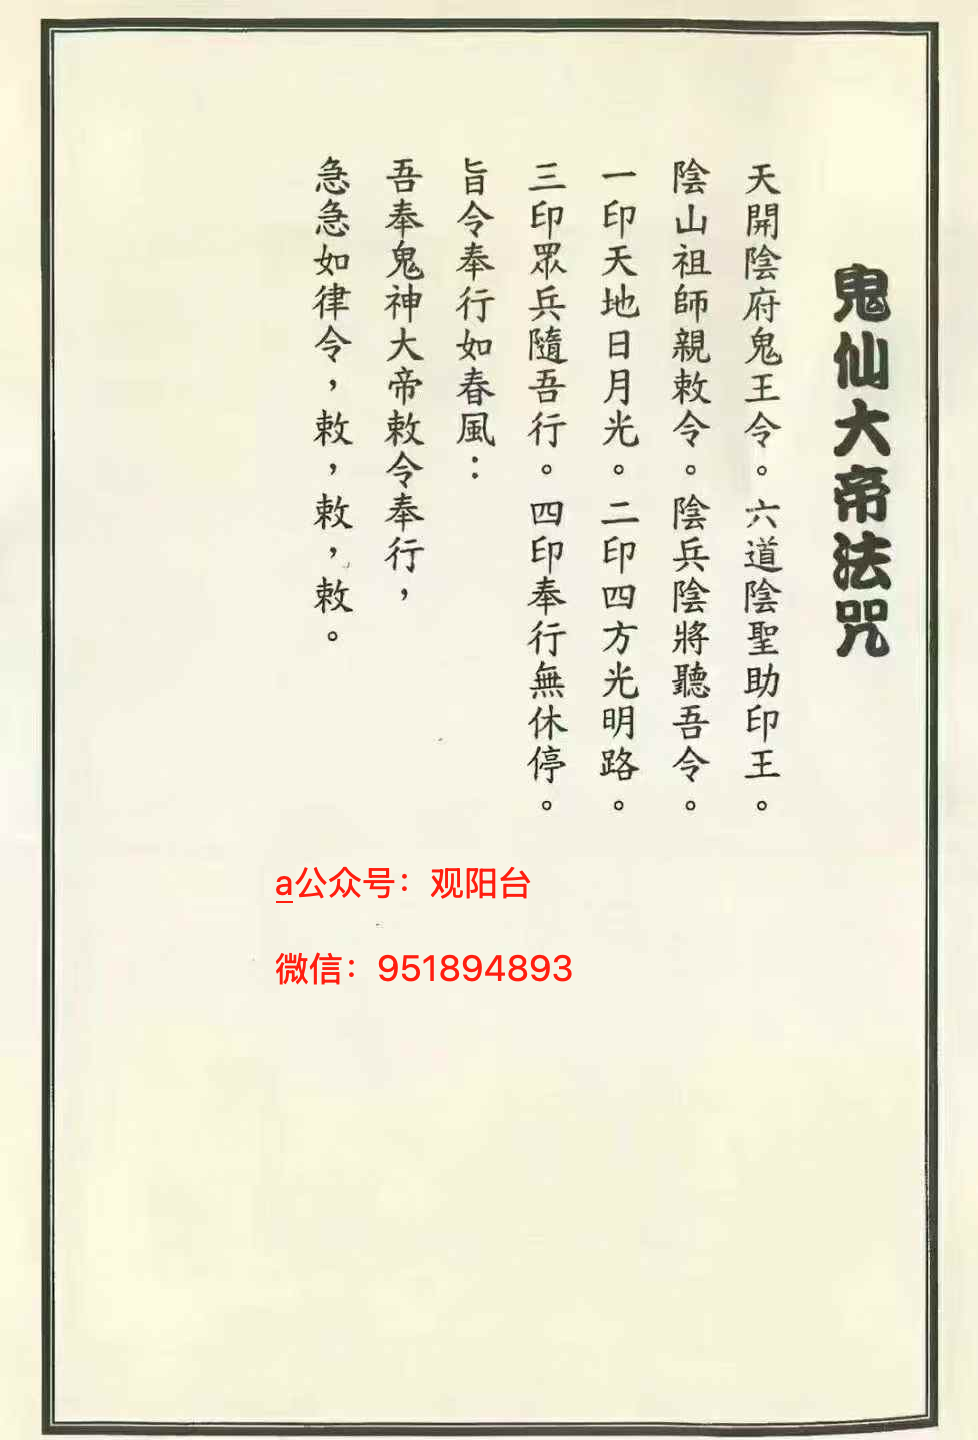 鬼仙大帝法咒
天開陰府鬼王令。六道陰聖助印王。
陰山祖師親敕令。陰兵陰將聽吾令。
一印天地日月光。二印四方光明路。
三印眾兵隨吾行。四印奉行無休停。
旨令奉行如春風：
吾奉鬼神大帝敕令奉行，
急急如律令，敕，敕，敕。
a公众号：观阳台
微信：951894893